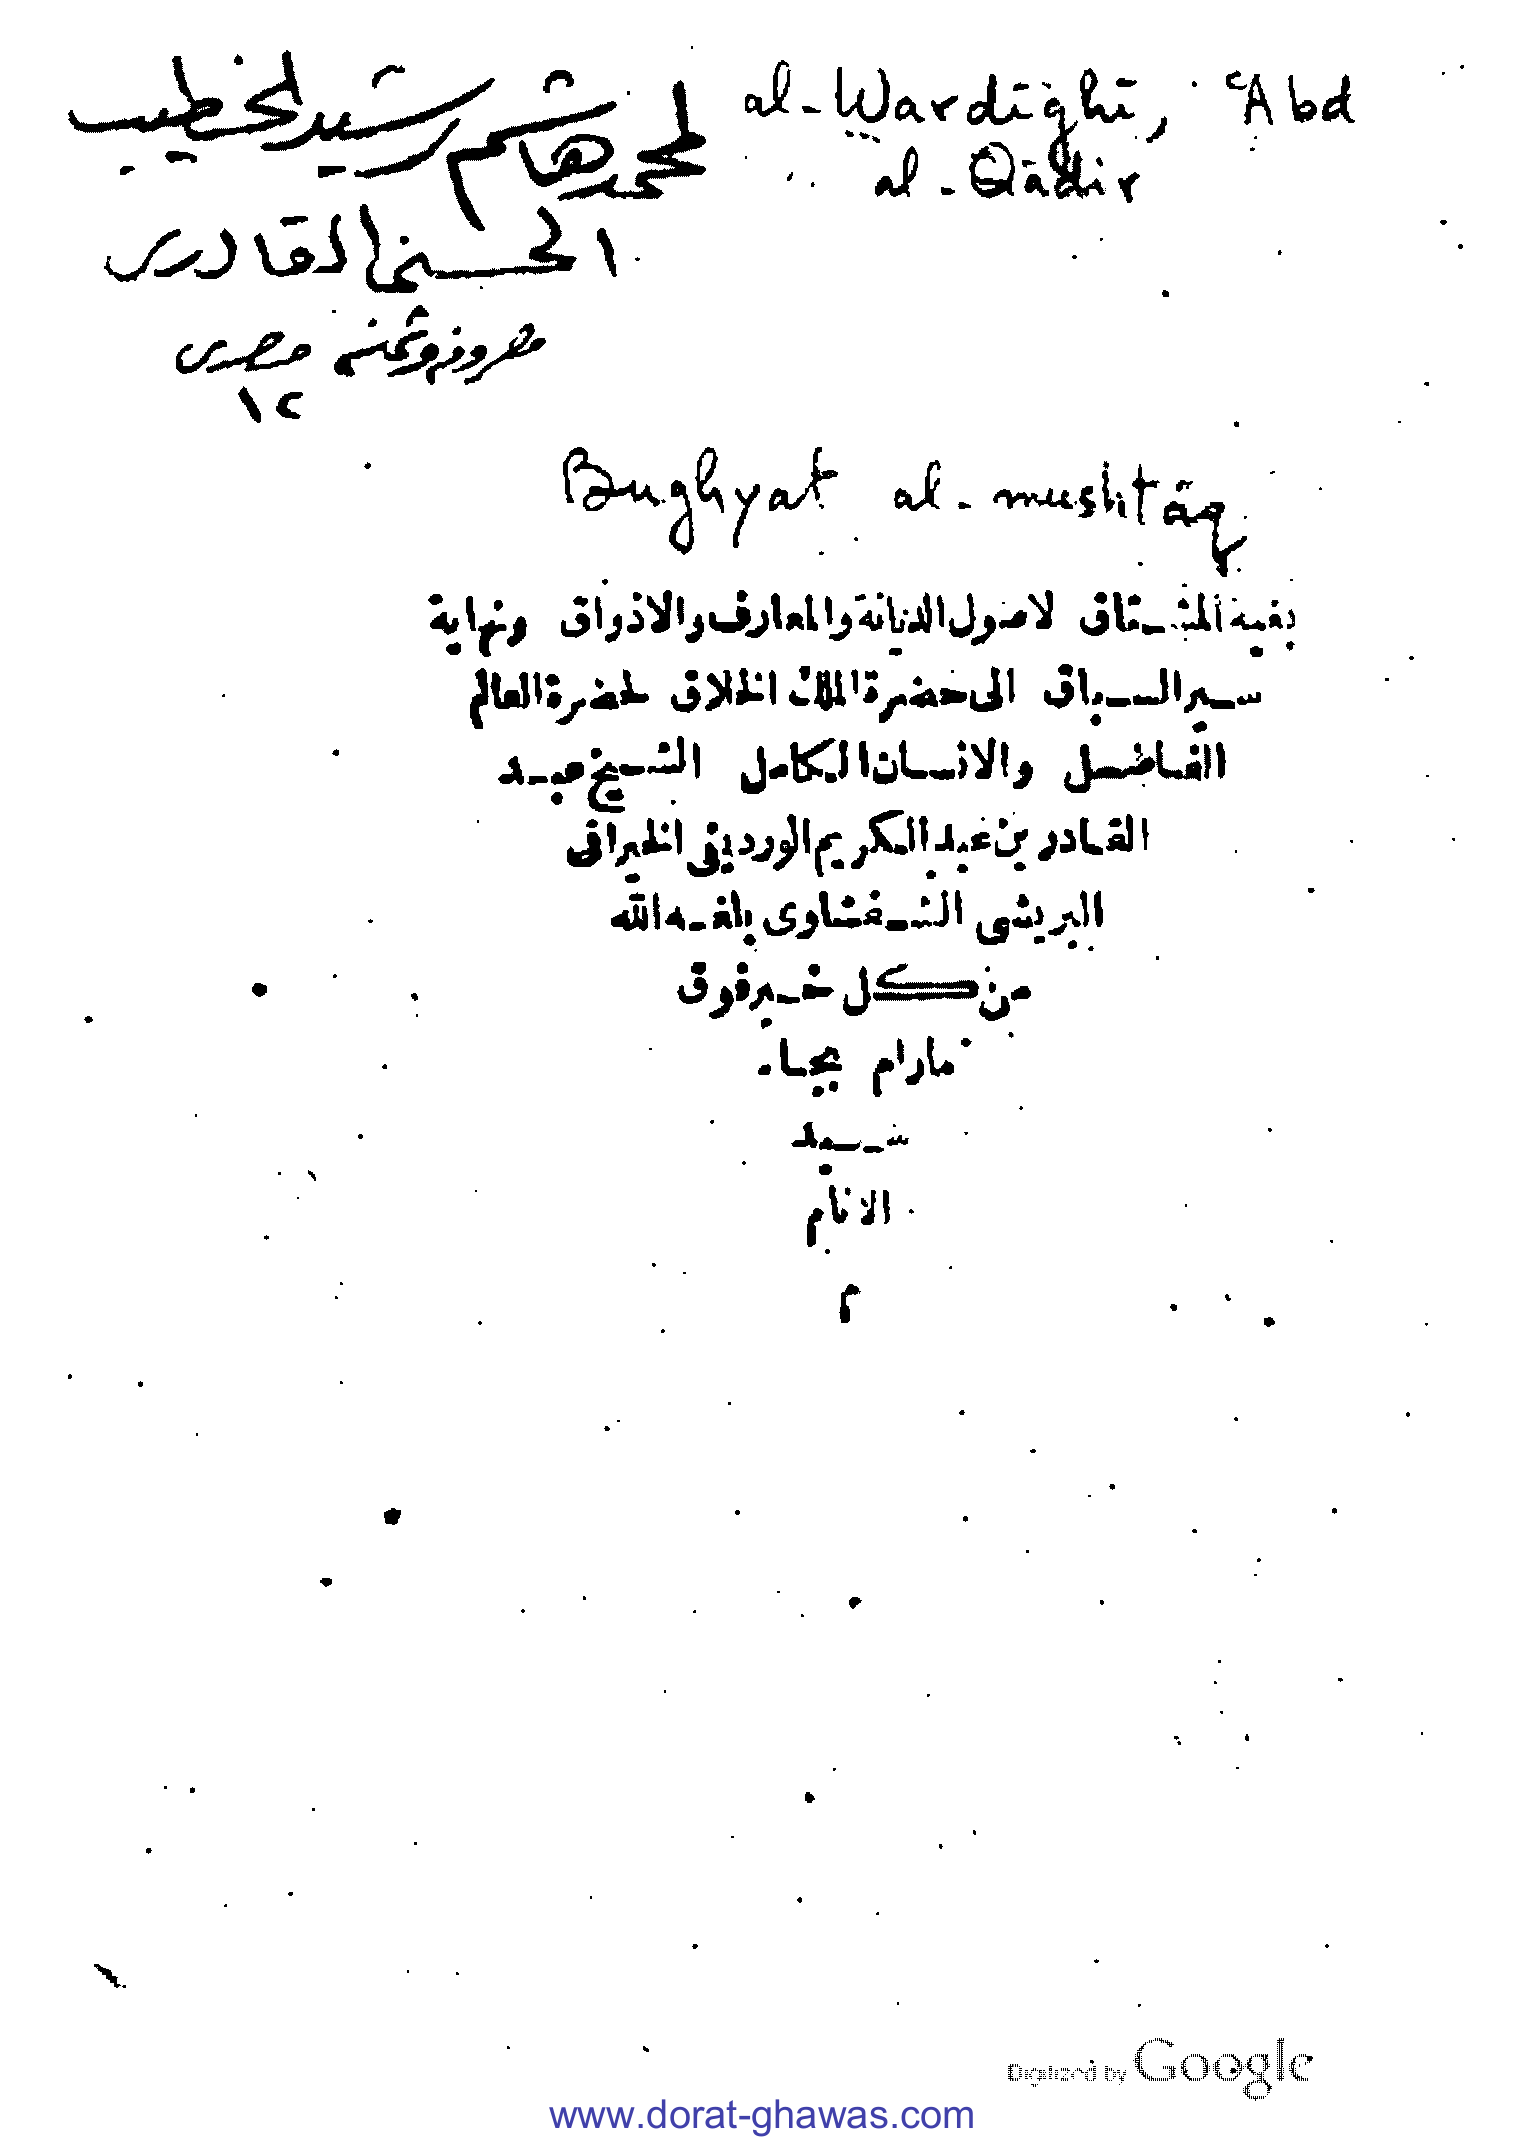 al-Wardīghī, ʿAbd
al-Qādir
لمحمد هاشم رشيد الخطيب
الحسني القادري
مصري
١٢
Bughyat al-mushtāq
بغية المشتاق لاصول الديانة والمعارف والاذواق ونهاية
سير السباق الى حضرة الملك الخلاق لحضرة العالم
الفاضل والانسان الكامل الشيخ عبد
القادر بن عبد الكريم الورديفى الخيرانى
البريشى الشفشاوى بلغه الله
من كل خير فوق
مارام بجاه
سيد
الانام
م
Digitized by Google
www.dorat-ghawas.com